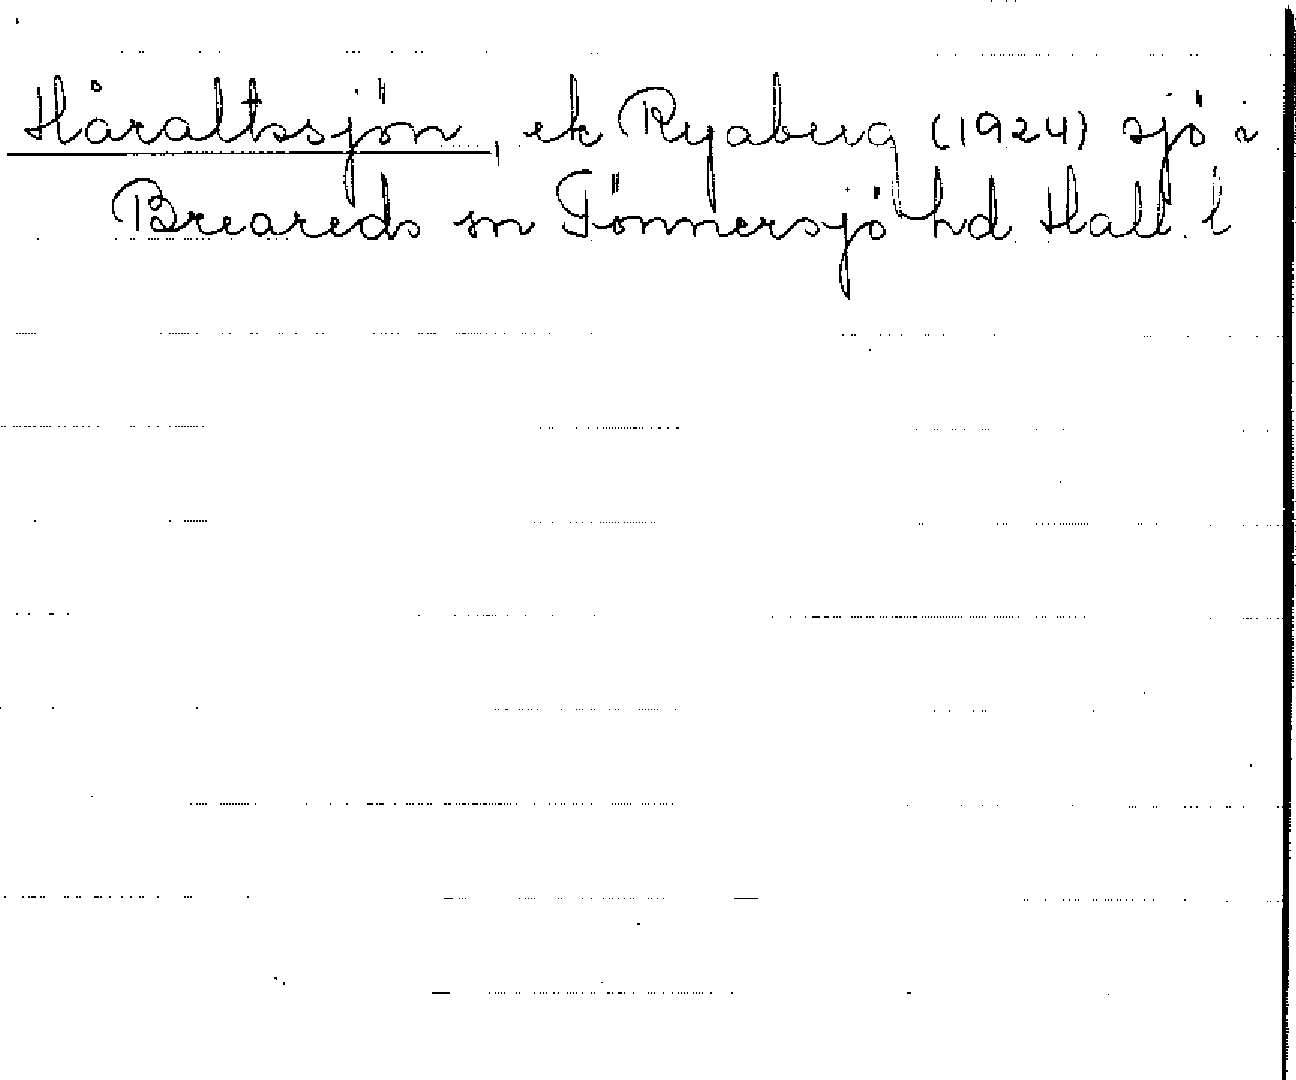 Håraltssjön, ek Ryaberg (1924) sjö i
Breareds sn Tönnersjö hd Hall. l